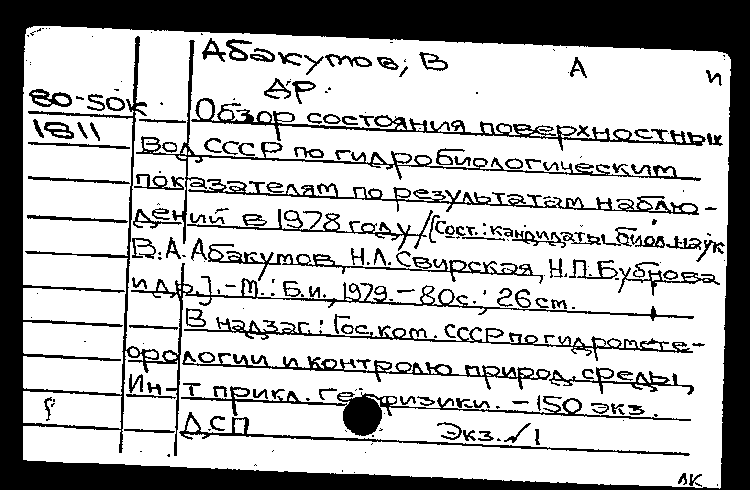 Абакумов, В А и
др.
80-50к
1811
Обзор состояния поверхностных
вод СССР по гидробиологическим
показателям по результатам наблю-
дений в 1978 году/[Сост.: кандидаты биол. наук
В.А. Абакумов, Н.Л. Свирская, Н.П. Бубнова
и др.]. - М.: Б.и., 1979. - 80с.; 26 см.
В надзаг.: Гос. ком. СССР по гидромете-
орологии и контролю природ. среды,
Ин-т прикл. геофизики. - 150 экз.
ДСП Экз. № 1
ЛК